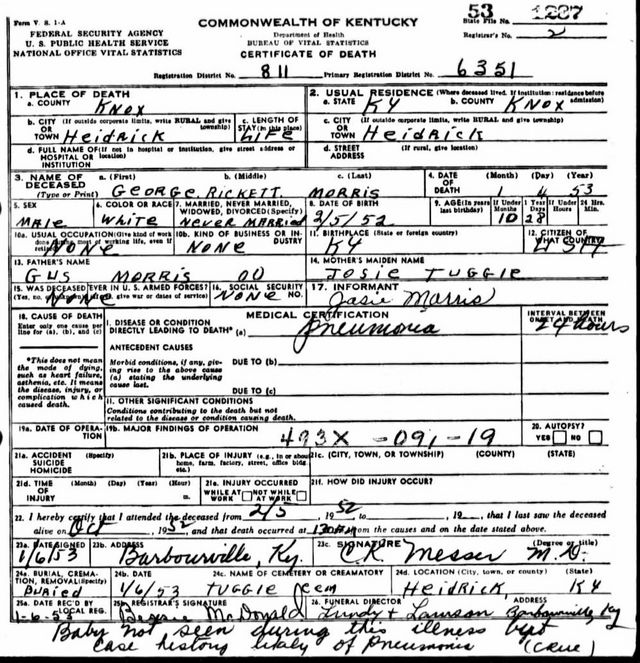 Form V. S. 1-A
FEDERAL SECURITY AGENCY
U. S. PUBLIC HEALTH SERVICE
NATIONAL OFFICE VITAL STATISTICS
COMMONWEALTH OF KENTUCKY
Department of Health
BUREAU OF VITAL STATISTICS
CERTIFICATE OF DEATH
53 1287
State File No.
Registrar's No. 2
Registration District No. 811 Primary Registration District No. 6351
1. PLACE OF DEATH
a. COUNTY KNOX
2. USUAL RESIDENCE (Where deceased lived. If institution: residence before admission)
a. STATE KY b. COUNTY KNOX
b. CITY (If outside corporate limits, write RURAL and give township) OR TOWN Heidrick
c. LENGTH OF STAY (in this place) Life
c. CITY (If outside corporate limits, write RURAL and give township) OR TOWN Heidrick
d. FULL NAME OF (If not in hospital or institution, give street address or location) HOSPITAL OR INSTITUTION
d. STREET ADDRESS (If rural, give location)
3. NAME OF DECEASED (Type or Print)
a. (First) b. (Middle) c. (Last)
GEORGE RICKETT MORRIS
4. DATE OF DEATH (Month) (Day) (Year)
1 4 53
5. SEX Male
6. COLOR OR RACE White
7. MARRIED, NEVER MARRIED, WIDOWED, DIVORCED (Specify) Never Married
8. DATE OF BIRTH 2/5/52
9. AGE (In years last birthday) If Under 1 Year Months 10 Days 28 If Under 24 Hrs. Hours Min.
10a. USUAL OCCUPATION (Give kind of work done during most of working life, even if retired) NONE
10b. KIND OF BUSINESS OR INDUSTRY NONE
11. BIRTHPLACE (State or foreign country) KY
12. CITIZEN OF WHAT COUNTRY? USA
13. FATHER'S NAME
GUS MORRIS 00
14. MOTHER'S MAIDEN NAME
JOSIE TUGGIE
15. WAS DECEASED EVER IN U. S. ARMED FORCES? (Yes, no, give war or dates of service) NONE
16. SOCIAL SECURITY NO. NONE
17. INFORMANT
Josie Morris
18. CAUSE OF DEATH
Enter only one cause per line for (a), (b), and (c)
*This does not mean the mode of dying, such as heart failure, asthenia, etc. It means the disease, injury, or complication which caused death.
MEDICAL CERTIFICATION
INTERVAL BETWEEN ONSET AND DEATH
I. DISEASE OR CONDITION DIRECTLY LEADING TO DEATH* (a) Pneumonia 24 hours
ANTECEDENT CAUSES
Morbid conditions, if any, giving rise to the above cause (a) stating the underlying cause last.
DUE TO (b)
DUE TO (c)
II. OTHER SIGNIFICANT CONDITIONS
Conditions contributing to the death but not related to the disease or condition causing death.
19a. DATE OF OPERATION
19b. MAJOR FINDINGS OF OPERATION
493X -091-19
20. AUTOPSY? YES NO
21a. ACCIDENT SUICIDE HOMICIDE (Specify)
21b. PLACE OF INJURY (e.g., in or about home, farm, factory, street, office bldg. etc.)
21c. (CITY, TOWN, OR TOWNSHIP) (COUNTY) (STATE)
21d. TIME OF INJURY (Month) (Day) (Year) (Hour)
21e. INJURY OCCURRED WHILE AT WORK NOT WHILE AT WORK
21f. HOW DID INJURY OCCUR?
22. I hereby certify that I attended the deceased from 2/5, 1952 to , 19 , that I last saw the deceased
alive on Oct, 1952, and that death occurred at 130 AM from the causes and on the date stated above.
23a. DATE SIGNED 1/6/53
23b. ADDRESS Barbourville, Ky.
23c. SIGNATURE (Degree or title) C.K. Messer M.D.
24a. BURIAL, CREMATION, REMOVAL (Specify) Buried
24b. DATE 1/6/53
24c. NAME OF CEMETERY OR CREMATORY TUGGIE Cem
24d. LOCATION (City, town, or county) (State) Heidrick KY
25a. DATE REC'D BY LOCAL REG. 1-6-53
25b. REGISTRAR'S SIGNATURE McDonald
26. FUNERAL DIRECTOR Lundy & Lawson Barbourville Ky
Baby not seen during this illness but
case history likely of Pneumonia